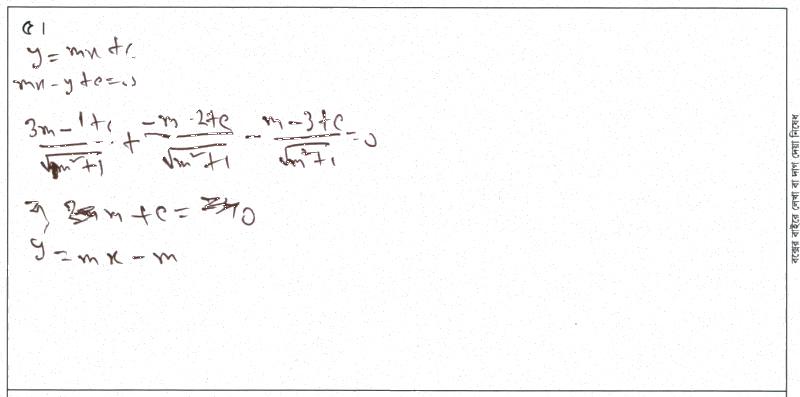 ৫।
y = mx + c
mx - y + c = 0
(3m - 1 + c)/√(m²+1) + (-m - 2 + c)/√(m²+1) - (m - 3 + c)/√(m²+1) = 0
⇒ m + c = 0
y = mx - m
বক্সের বাইরে লেখা বা দাগ দেয়া নিষেধ